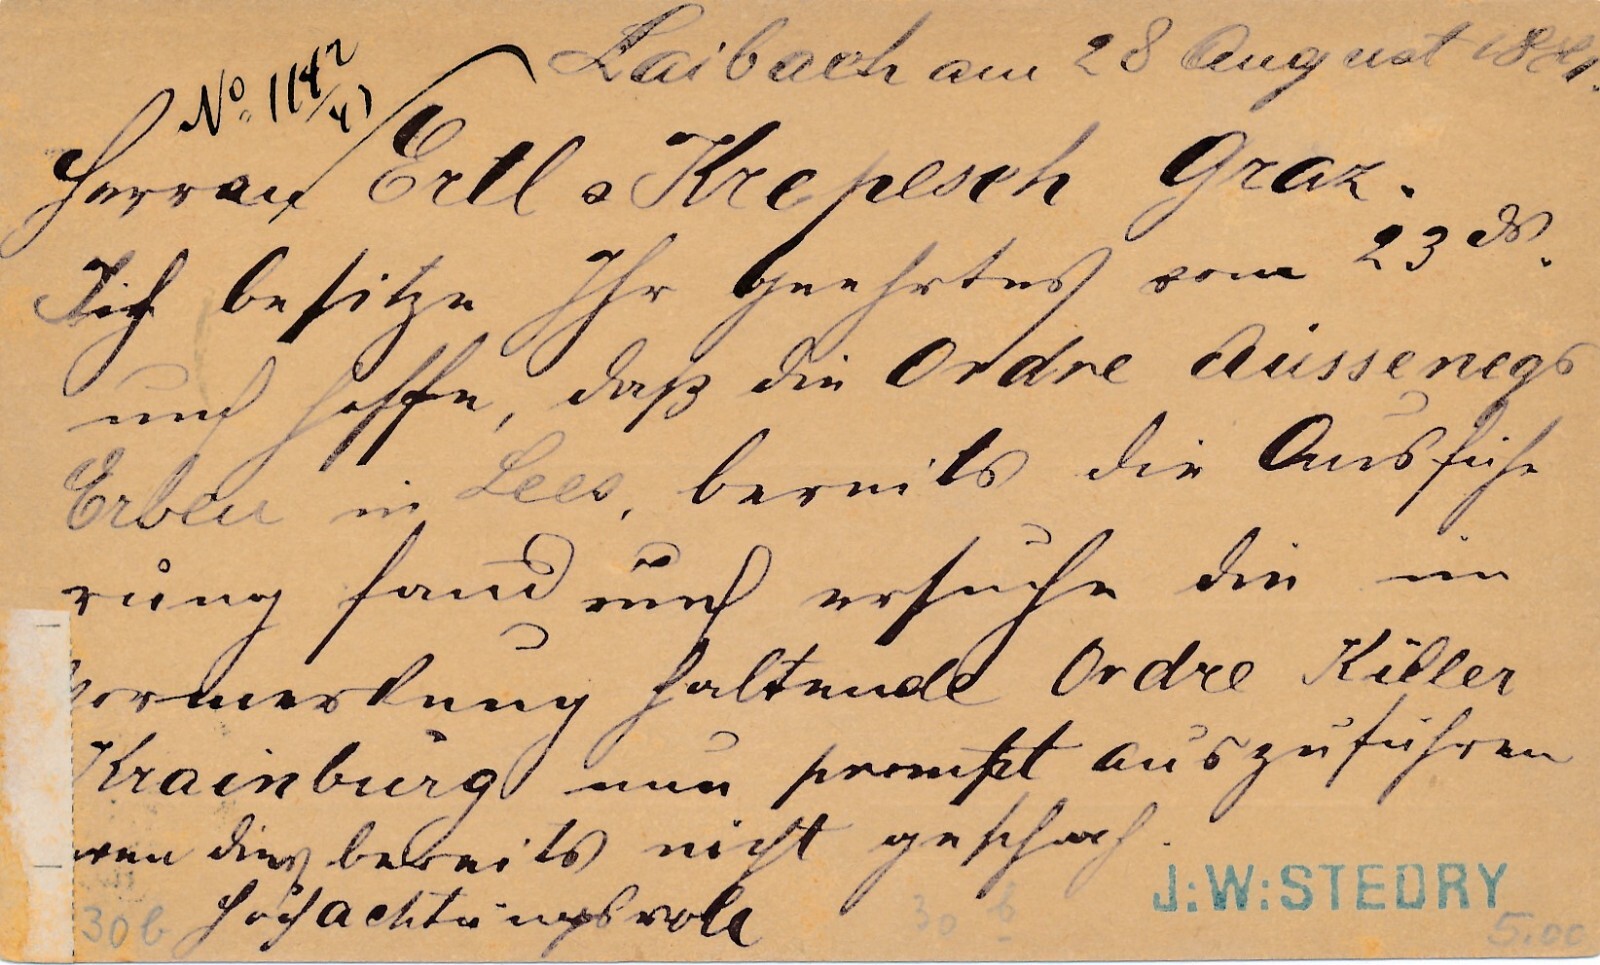 Laibach am 28 August 1881.
No. 1142/41
Herren Ertl & Krepesch Graz.
Ich besitze Ihr geehrtes vom 23 ds.
und hoffe, daß die Ordre Aussenegs
Erben in Lees, bereits die Ausfüh
rung fand und ersuche die in
Vormerkung haltende Ordre Killer
Krainburg nun prompt auszuführen
wen dies bereits nicht geschah.
hochachtungsvoll
J:W:STEDRY
30 b
30 b
5.00